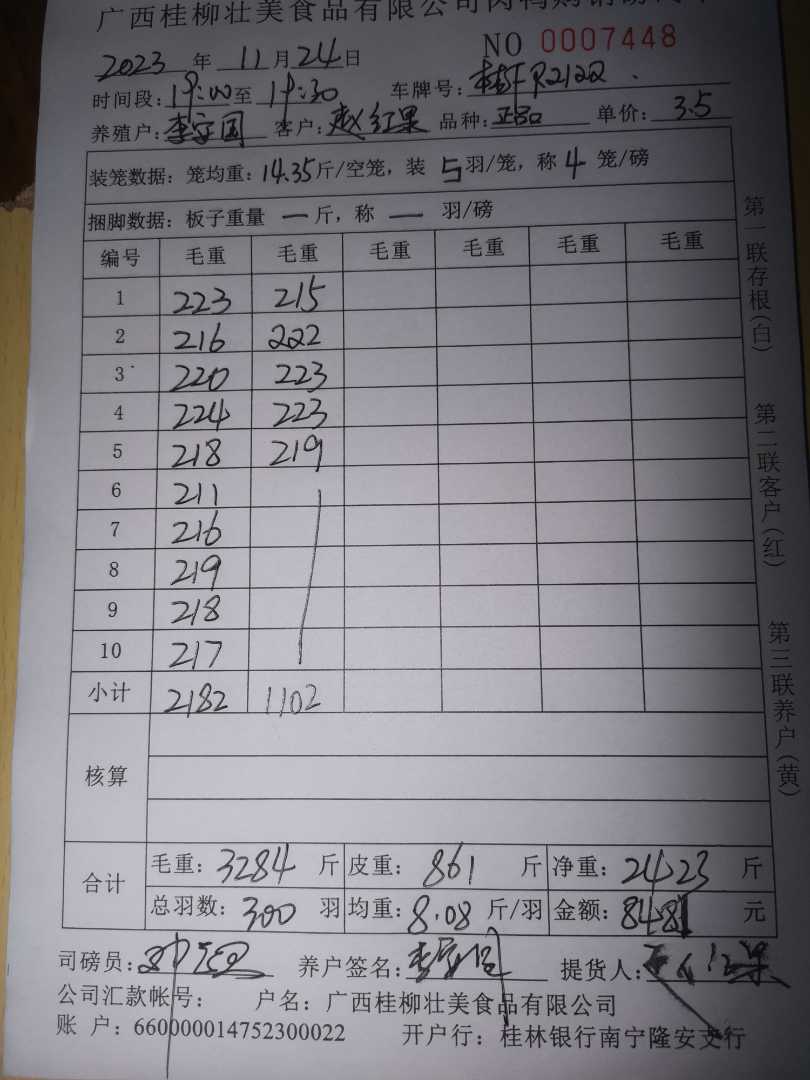 广西桂柳壮美食品有限公司肉鸭购销
NO 0007448
2023 年 11 月 24 日
时间段: 19:00 至 19:30 车牌号: R2122
养殖户: 李宗国 客户: 赵红果 品种: 正品 单价: 3.5
装笼数据: 笼均重: 14.35 斤/空笼, 装 5 羽/笼, 称 4 笼/磅
捆脚数据: 板子重量 一 斤, 称 一 羽/磅
编号 毛重 毛重 毛重 毛重 毛重 毛重
1 223 215
2 216 222
3 220 223
4 224 223
5 218 219
6 211
7 216
8 219
9 218
10 217
小计 2182 1102
核算
合计 毛重: 3284 斤 皮重: 861 斤 净重: 2423 斤
总羽数: 300 羽 均重: 8.08 斤/羽 金额: 8481 元
司磅员: 养户签名: 提货人:
公司汇款帐号: 户名: 广西桂柳壮美食品有限公司
账 户: 660000014752300022 开户行: 桂林银行南宁隆安支行
第一联存根(白)
第二联客户(红)
第三联养户(黄)